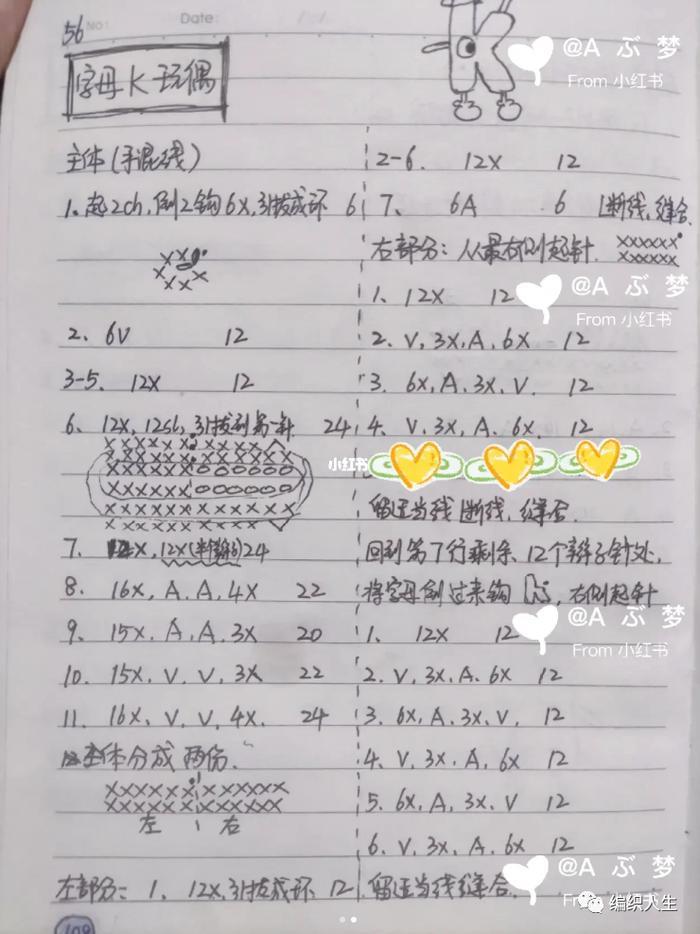 56
No:
Date:
字母K玩偶
主体(手混线)
1、起2ch,倒2钩6X,引拔成环 6
2、6V 12
3-5、12X 12
6、12X,12ch,引拔到第一针 24
7、12X,12X(半辫子)24
8、16X,A,A,4X 22
9、15X,A,A,3X 20
10、15X,V,V,3X 22
11、16X,V,V,4X. 24
主体分成两份.
左 右
左部分:1、12X,引拔成环 12
2-6. 12X 12
7、6A 6 断线,缝合.
右部分:从最右侧起针.
1、12X 12
2、V,3X,A,6X 12
3、6X,A,3X,V. 12
4、V,3X,A,6X. 12
留适当线断线,缝合.
回到第7行剩余、12个辫子针处,
将字母倒过来钩,右侧起针
1、12X 12
2、V,3X,A.6X 12
3、6X,A,3X,V, 12
4、V,3X,A,6X 12
5、6X,A,3X,V 12
6、V,3X,A,6X 12
留适当线缝合.
109
@A ぶ 梦
From 小红书
@A ぶ 梦
From 小红书
小红书
@A ぶ 梦
From 小红书
@A ぶ 梦
From 小红书
编织人生